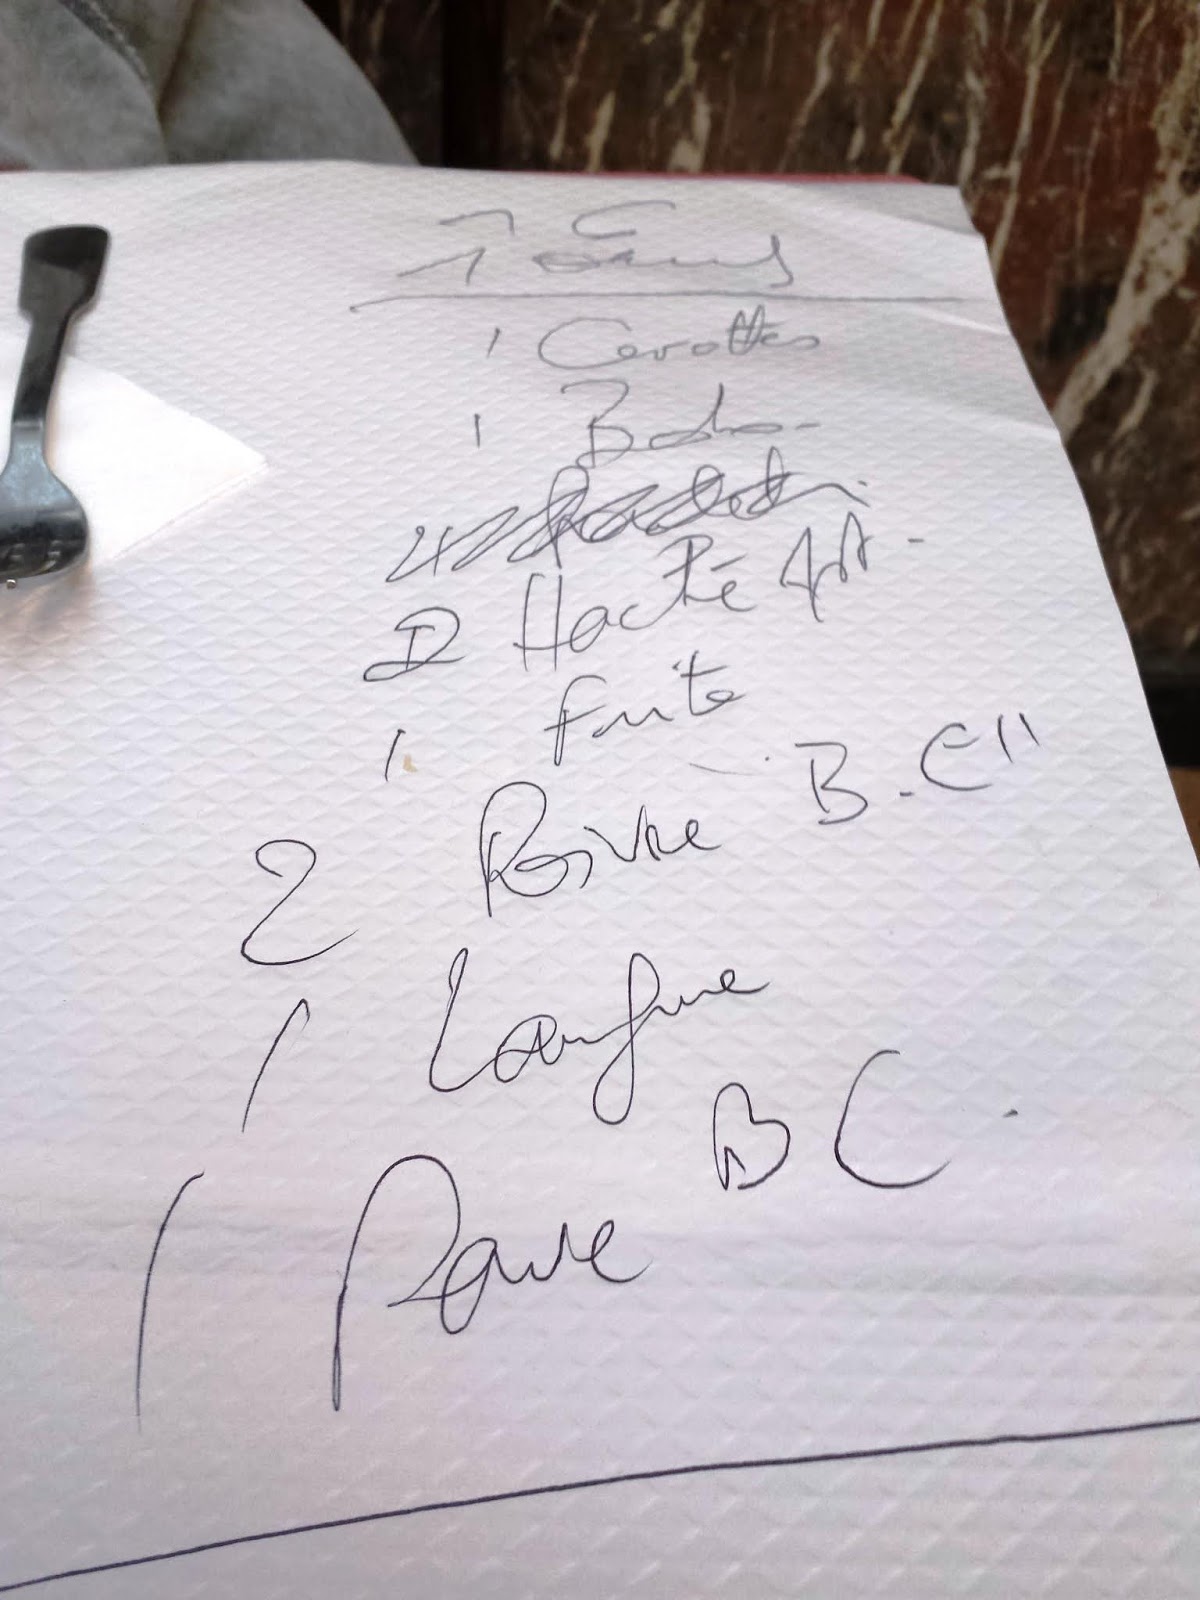 1 C
1
1 Carottes
1 Bobo.
2 Haché
1 Frite
2 Poivre B.C"
1 Langue
1 Pave BC